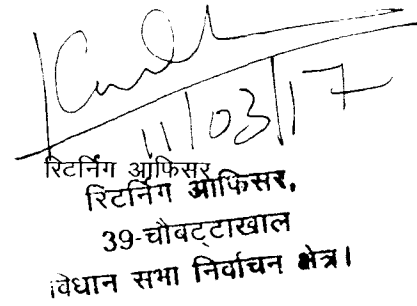 11/03/17
रिटर्निंग आफिसर
रिटर्निंग आफिसर,
39-चौबट्टाखाल
विधान सभा निर्वाचन क्षेत्र।